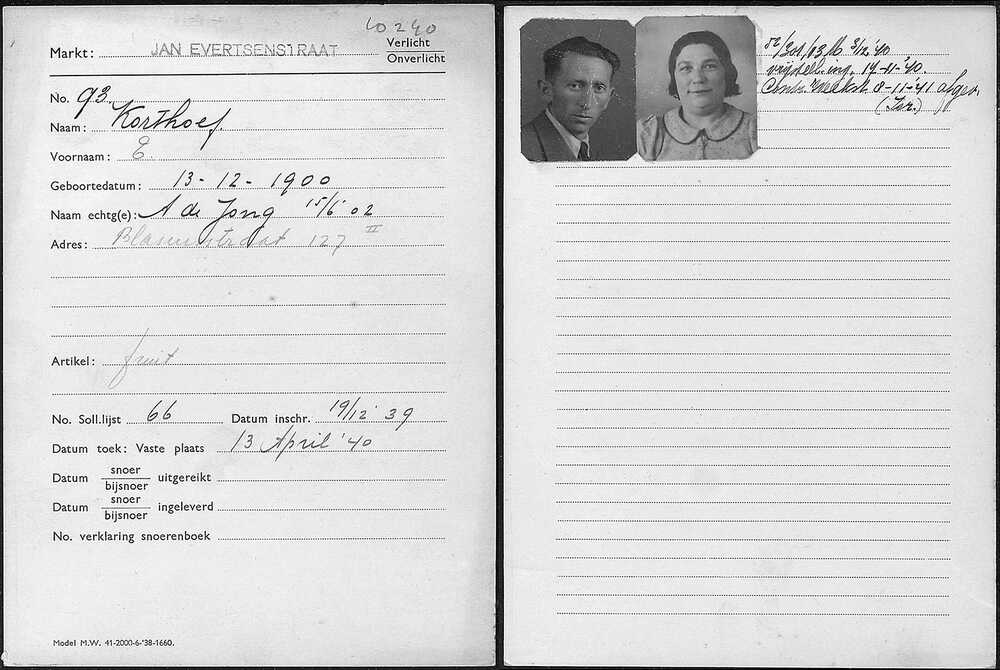 10240
Markt: JAN EVERTSENSTRAAT Verlicht
Onverlicht
No. 93.
Naam: Korthoef
Voornaam: E.
Geboortedatum: 13-12-1900
Naam echtg(e): A de Jong 15/6 02
Adres: Blasiusstraat 127 II
Artikel: fruit
No. Soll.lijst 66 Datum inschr. 19/12 '39
Datum toek: Vaste plaats 13 April '40
Datum snoer
bijsnoer uitgereikt
Datum snoer
bijsnoer ingeleverd
No. verklaring snoerenboek
Model M.W. 41-2000-6-'38-1660.
3/12 '40
vrijstelling 17-11-'40.
8-11-'41 afgev.